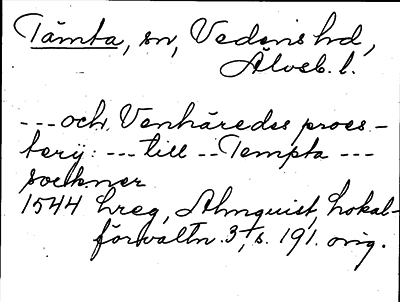 Tämta, sn, Vedens hd,
Älvsb. l.
--- och Venhäredes proes-
terij: --- till -- Tempta ---
sockner
1544 hreg, Almquist, Lokal-
förvaltn. 3, s. 191. orig.